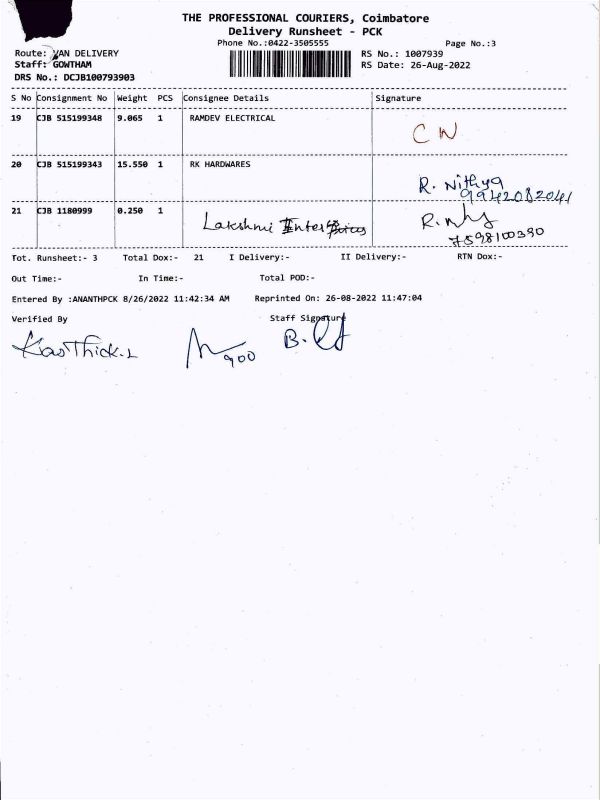 THE PROFESSIONAL COURIERS, Coimbatore
Delivery Runsheet - PCK
Phone No.:0422-3505555 Page No.:3
Route: VAN DELIVERY RS No.: 1007939
Staff: GOWTHAM RS Date: 26-Aug-2022
DRS No.: DCJB100793903
S No Consignment No Weight PCS Consignee Details Signature
19 CJB 515199348 9.065 1 RAMDEV ELECTRICAL
CN
20 CJB 515199343 15.550 1 RK HARDWARES
R. Nithya
9942082041
21 CJB 1180999 0.250 1 Lakshmi
7598100390
Tot. Runsheet:- 3 Total Dox:- 21 I Delivery:- II Delivery:- RTN Dox:-
Out Time:- In Time:- Total POD:-
Entered By :ANANTHPCK 8/26/2022 11:42:34 AM Reprinted On: 26-08-2022 11:47:04
Verified By Staff Signature
900